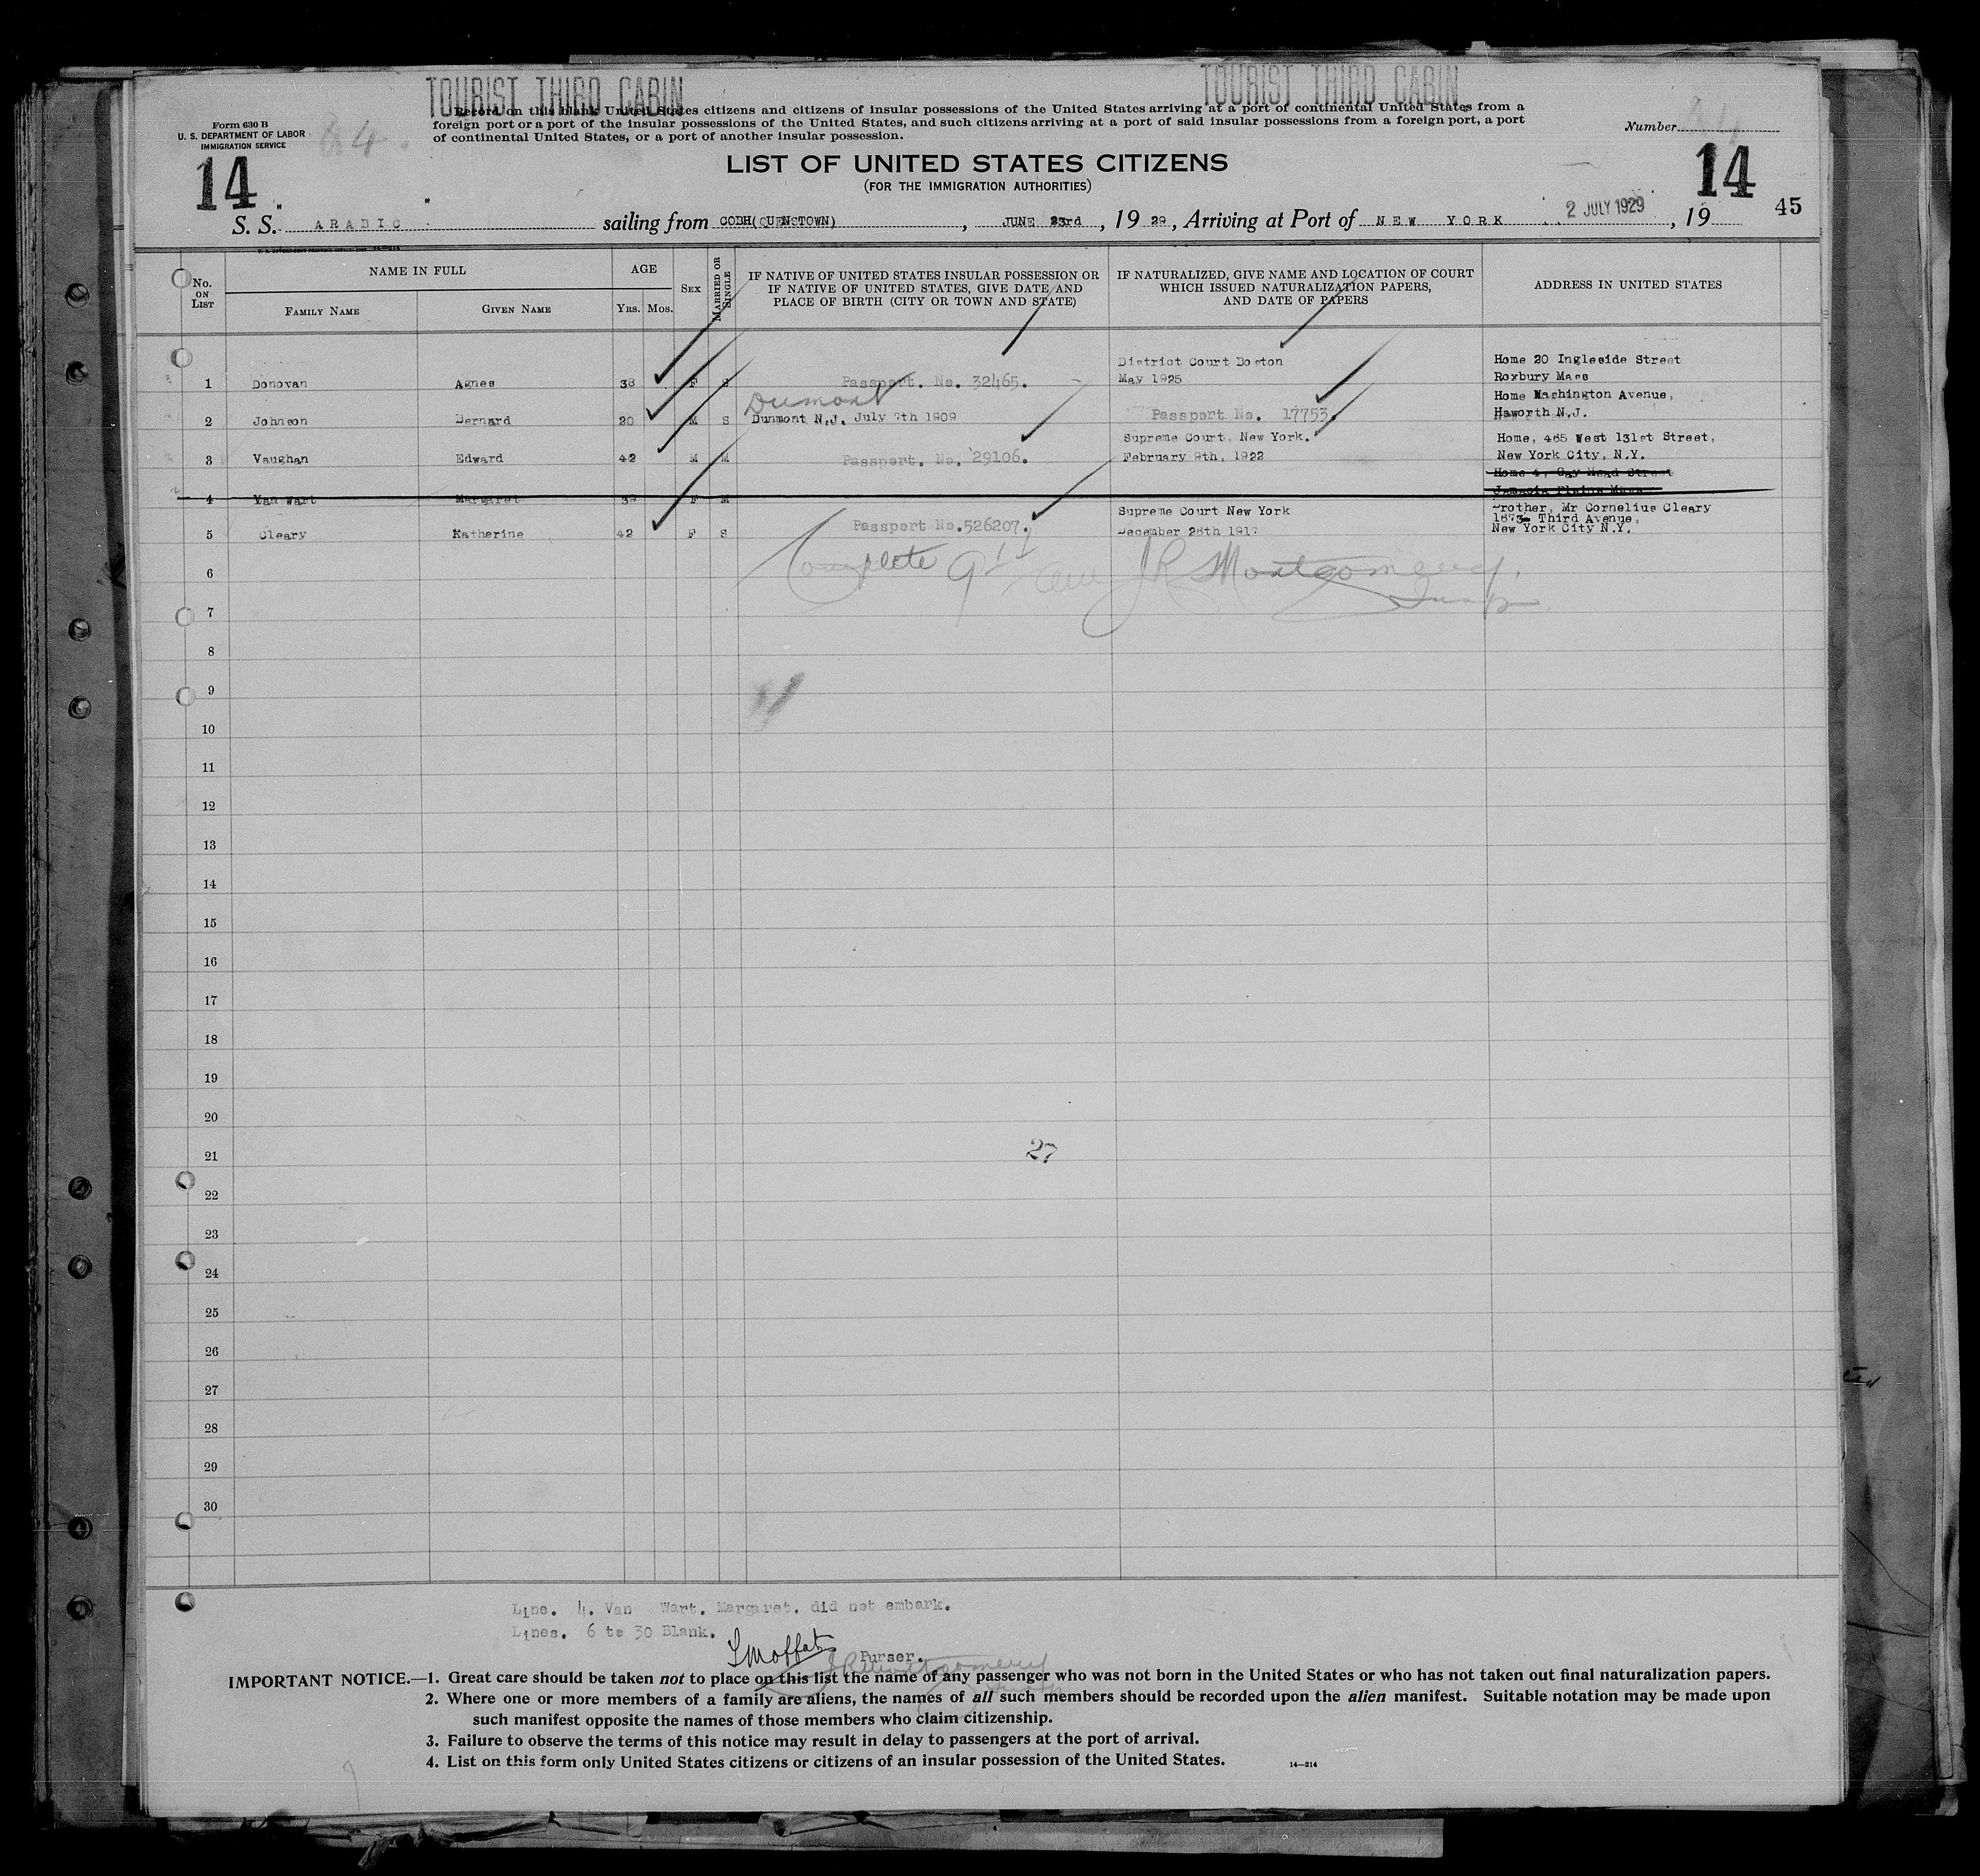 TOURIST THIRD CABIN TOURIST THIRD CABIN
Form 630 B
U. S. DEPARTMENT OF LABOR
IMMIGRATION SERVICE
Record on this blank United States citizens and citizens of insular possessions of the United States arriving at a port of continental United States from a
foreign port or a port of the insular possessions of the United States, and such citizens arriving at a port of said insular possessions from a foreign port, a port
of continental United States, or a port of another insular possession.
Number
LIST OF UNITED STATES CITIZENS
(FOR THE IMMIGRATION AUTHORITIES)
14 14
S. S. " ARABIC " sailing from COBH(QUENSTOWN), JUNE 23rd, 19 29, Arriving at Port of NEW YORK 2 JULY 1929, 19 45
No. ON LIST
NAME IN FULL
FAMILY NAME GIVEN NAME
AGE
YRS. MOS.
SEX
MARRIED OR SINGLE
IF NATIVE OF UNITED STATES INSULAR POSSESSION OR
IF NATIVE OF UNITED STATES, GIVE DATE AND
PLACE OF BIRTH (CITY OR TOWN AND STATE)
IF NATURALIZED, GIVE NAME AND LOCATION OF COURT
WHICH ISSUED NATURALIZATION PAPERS,
AND DATE OF PAPERS
ADDRESS IN UNITED STATES
District Court Boston Home 20 Ingleside Street
1 Donovan Agnes 38 F S Passport. No. 32465. May 1925 Roxbury Mass
Dumont Home Washington Avenue,
2 Johnson Bernard 20 M S Dunmont N.J. July 7th 1909 Passport No. 17753. Haworth N.J.
Supreme Court, New York. Home, 465 West 131st Street,
3 Vaughan Edward 42 M M Passport. No. 29106. February 9th, 1922 New York City, N.Y.
Home 4, Gay Head Street
4 Van Wart Margaret F M Jamacia Plains Mass
Supreme Court New York Brother, Mr Cornelius Cleary
1673 Third Avenue,
5 Cleary Katherine 42 F S Passport No.526207. December 28th 1917 New York City N.Y.
6 Complete J R Montgomery
7
8
9
10
11
12
13
14
15
16
17
18
19
20
21 27
22
23
24
25
26
27
28
29
30
Line. 4. Van Wart. Margaret. did not embark.
Lines. 6 to 30 Blank.
Moffat Purser.
JR Montgomery
IMPORTANT NOTICE.—1. Great care should be taken not to place on this list the name of any passenger who was not born in the United States or who has not taken out final naturalization papers.
2. Where one or more members of a family are aliens, the names of all such members should be recorded upon the alien manifest. Suitable notation may be made upon
such manifest opposite the names of those members who claim citizenship.
3. Failure to observe the terms of this notice may result in delay to passengers at the port of arrival.
4. List on this form only United States citizens or citizens of an insular possession of the United States.
14—214